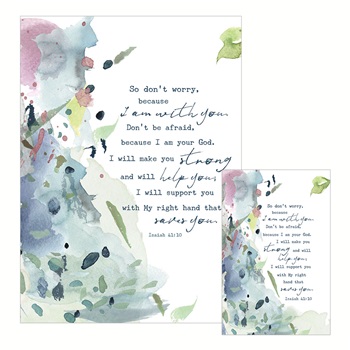 So don't worry,
because
I am with you.
Don't be afraid,
because I am your God.
I will make you strong
and will help you.
I will support you
with My right hand that
saves you.
Isaiah 41:10
So don't worry,
because
I am with you.
Don't be afraid,
because I am your God.
I will make you
strong
and will
help you.
I will support you
with My right
hand that
saves you.
Isaiah 41:10